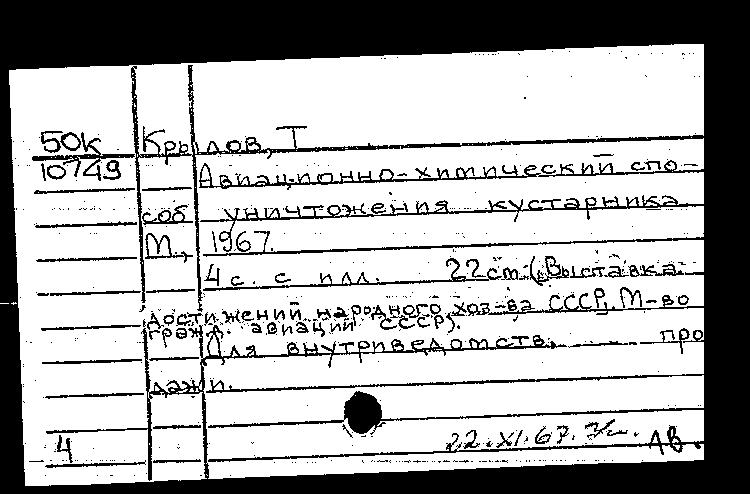 50К Крылов, Т
10749
Авиационно-химический спо-
соб уничтожения кустарника
М., 1967.
4 с. с илл. 22 см. (Выставка
достижений народного хоз-ва СССР, М-во
гражд. авиации СССР).
Для внутриведомств. про
дажи.
4 22.XI.67. АВ.